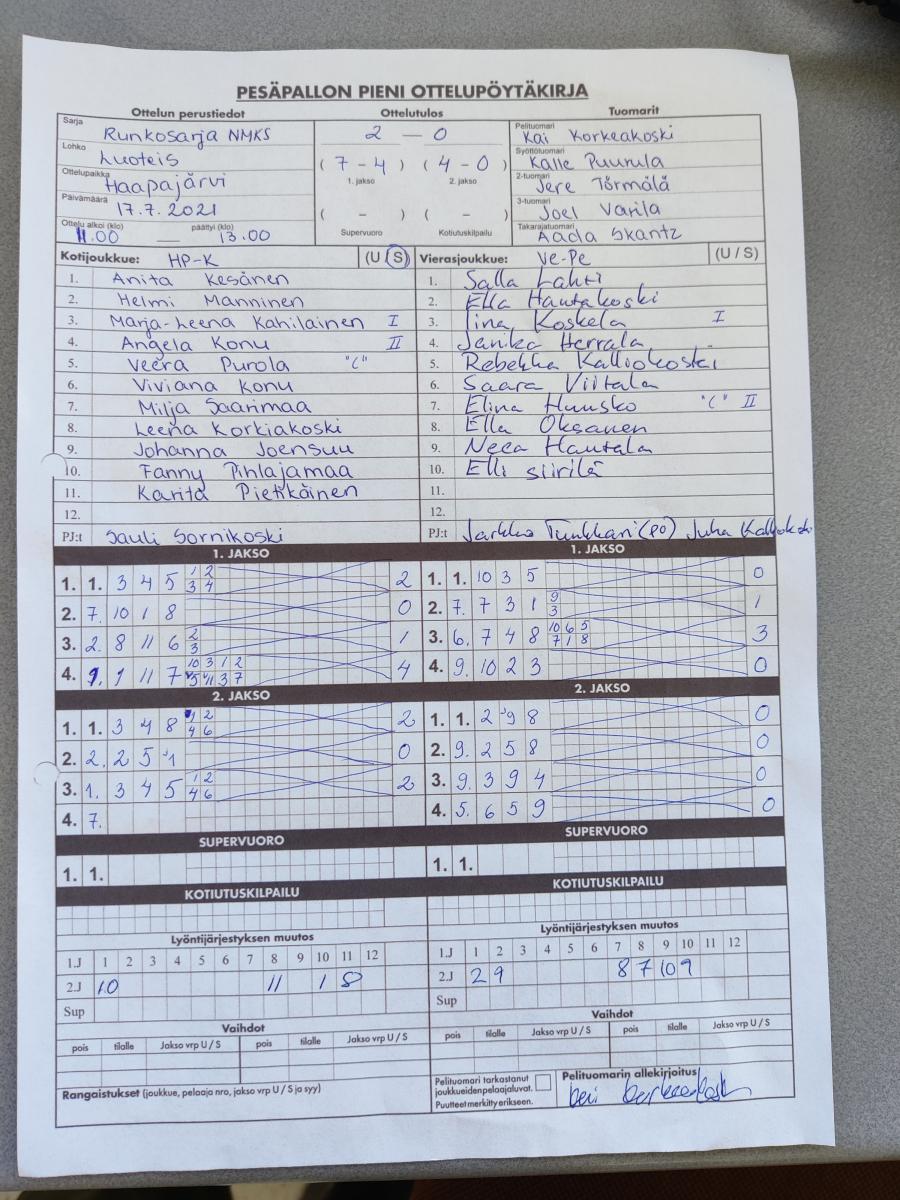 PESÄPALLON PIENI OTTELUPÖYTÄKIRJA
Ottelun perustiedot Ottelutulos Tuomarit
Sarja Runkosarja NMKS 2 — 0 Pelituomari Kai Korkeakoski
Lohko Luoteis ( 7 - 4 ) ( 4 - 0 ) Syöttötuomari Kalle Puurula
Ottelupaikka Haapajärvi 1. jakso 2. jakso 2-tuomari Jere Törmälä
Päivämäärä 17.7.2021 ( - ) ( - ) 3-tuomari Joel Varila
Ottelu alkoi (klo) 11.00 — päättyi (klo) 13.00 Supervuoro Kotiutuskilpailu Takarajatuomari Aada Skantz
Kotijoukkue: HP-K (U / S) Vierasjoukkue: Ve-Pe (U / S)
1. Anita Kesänen 1. Salla Lahti
2. Helmi Manninen 2. Ella Hautakoski
3. Marja-Leena Kahilainen I 3. Iina Koskela I
4. Angela Konu II 4. Janika Herrala
5. Veera Purola "C" 5. Rebekka Kalliokoski
6. Viviana Konu 6. Saara Viitala
7. Milja Saarimaa 7. Elina Huusko "C" II
8. Leena Korkiakoski 8. Ella Oksanen
9. Johanna Joensuu 9. Neea Hautala
10. Fanny Pihlajamaa 10. Elli Siirilä
11. Karita Pietikäinen 11.
12. 12.
PJ:t Sauli Sornikoski PJ:t Jarkko Tunkkari (PO) Juha
1. JAKSO 1. JAKSO
1. 1. 3 4 5 1 2 3 4 2 1. 1. 10 3 5 0
2. 7. 10 1 8 0 2. 7. 7 3 1 9 3 1
3. 2. 8 11 6 2 3 1 3. 6. 7 4 8 10 6 5 7 1 8 3
4. 9. 9 11 7 10 3 1 2 5 11 3 7 4 4. 9. 10 2 3 0
2. JAKSO 2. JAKSO
1. 1. 3 4 8 1 2 4 6 2 1. 1. 2 9 8 0
2. 2. 2 5 1 0 2. 9. 2 5 8 0
3. 1. 3 4 5 1 2 4 6 2 3. 9. 3 9 4 0
4. 7. 4. 5. 6 5 9 0
SUPERVUORO SUPERVUORO
1. 1. 1. 1.
KOTIUTUSKILPAILU KOTIUTUSKILPAILU
Lyöntijärjestyksen muutos Lyöntijärjestyksen muutos
1.J 1 2 3 4 5 6 7 8 9 10 11 12 1.J 1 2 3 4 5 6 7 8 9 10 11 12
2.J 10 11 1 8 2.J 2 9 8 7 10 9
Sup Sup
Vaihdot Vaihdot
pois tilalle Jakso vrp U / S pois tilalle Jakso vrp U / S pois tilalle Jakso vrp U / S pois tilalle Jakso vrp U / S
Rangaistukset (joukkue, pelaaja nro, jakso vrp U / S ja syy) Pelituomari tarkastanut joukkueiden pelaajaluvat. Puutteet merkitty erikseen. Pelituomarin allekirjoitus